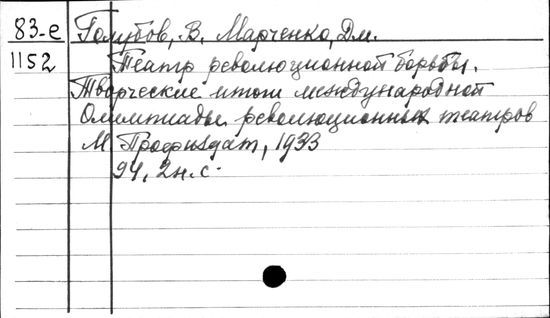 83-е Голубов, В. Марченко, Дм.
1152 Театр революционной борьбы.
Творческие итоги международной
Олимпиады революционных театров
М Профиздат, 1933
94, 2н.с.